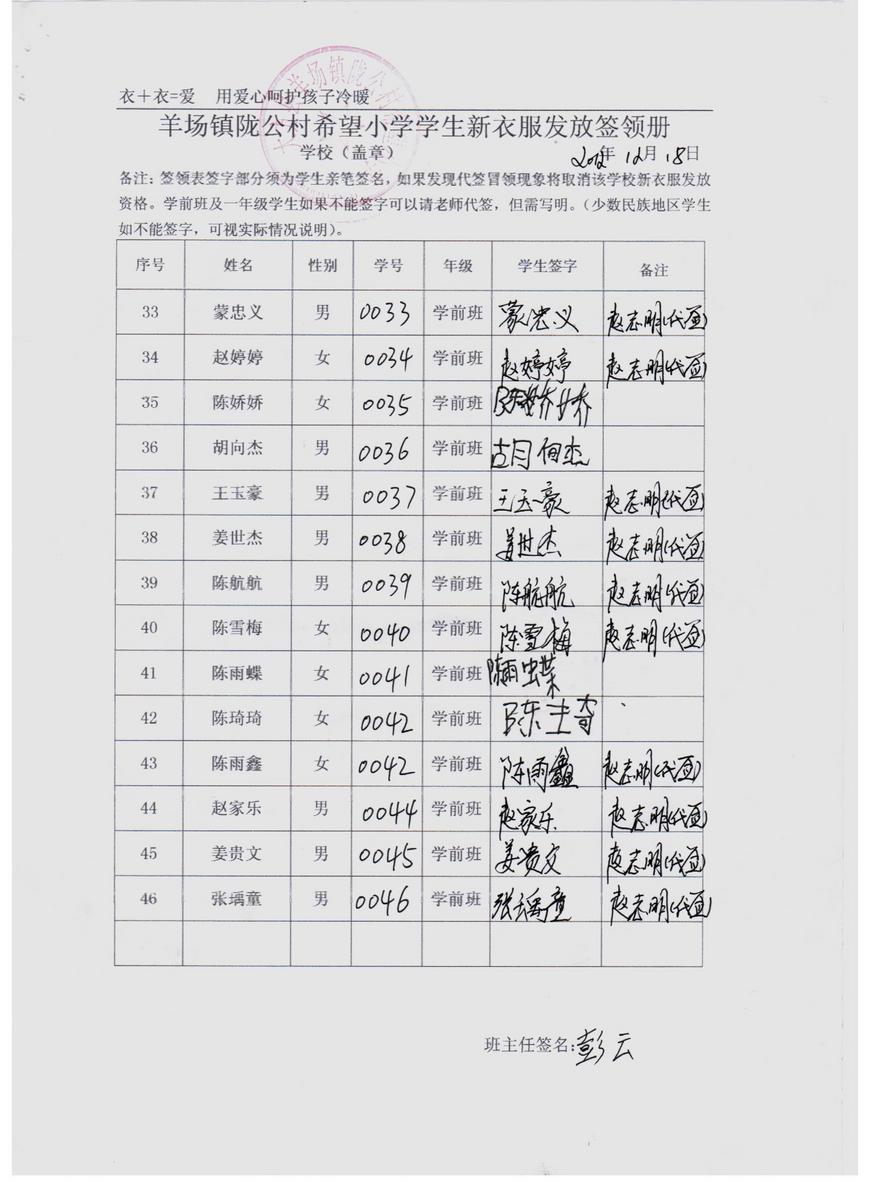 衣＋衣=爱 用爱心呵护孩子冷暖
羊场镇陇公村希望小学学生新衣服发放签领册
学校（盖章） 2012年 12月 18日
备注：签领表签字部分须为学生亲笔签名，如果发现代签冒领现象将取消该学校新衣服发放
资格。学前班及一年级学生如果不能签字可以请老师代签，但需写明。（少数民族地区学生
如不能签字，可视实际情况说明）。
序号 姓名 性别 学号 年级 学生签字 备注
33 蒙忠义 男 0033 学前班 蒙忠义 赵志明(代签)
34 赵婷婷 女 0034 学前班 赵婷婷 赵志明(代签)
35 陈娇娇 女 0035 学前班 陈娇娇
36 胡向杰 男 0036 学前班 胡向杰
37 王玉豪 男 0037 学前班 王玉豪 赵志明(代签)
38 姜世杰 男 0038 学前班 姜世杰 赵志明(代签)
39 陈航航 男 0039 学前班 陈航航 赵志明(代签)
40 陈雪梅 女 0040 学前班 陈雪梅 赵志明(代签)
41 陈雨蝶 女 0041 学前班 陈雨蝶
42 陈琦琦 女 0042 学前班 陈琦
43 陈雨鑫 女 0042 学前班 陈雨鑫 赵志明(代签)
44 赵家乐 男 0044 学前班 赵家乐 赵志明(代签)
45 姜贵文 男 0045 学前班 姜贵文 赵志明(代签)
46 张瑀童 男 0046 学前班 张瑀童 赵志明(代签)
班主任签名：彭云